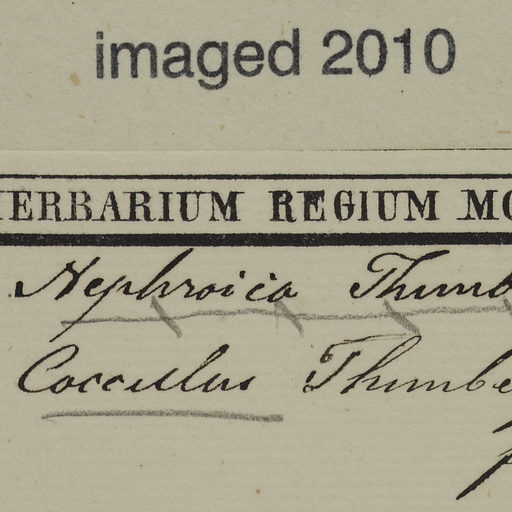 imaged 2010
HERBARIUM REGIUM MO
Nephroica Thunb
Cocculus Thumbe